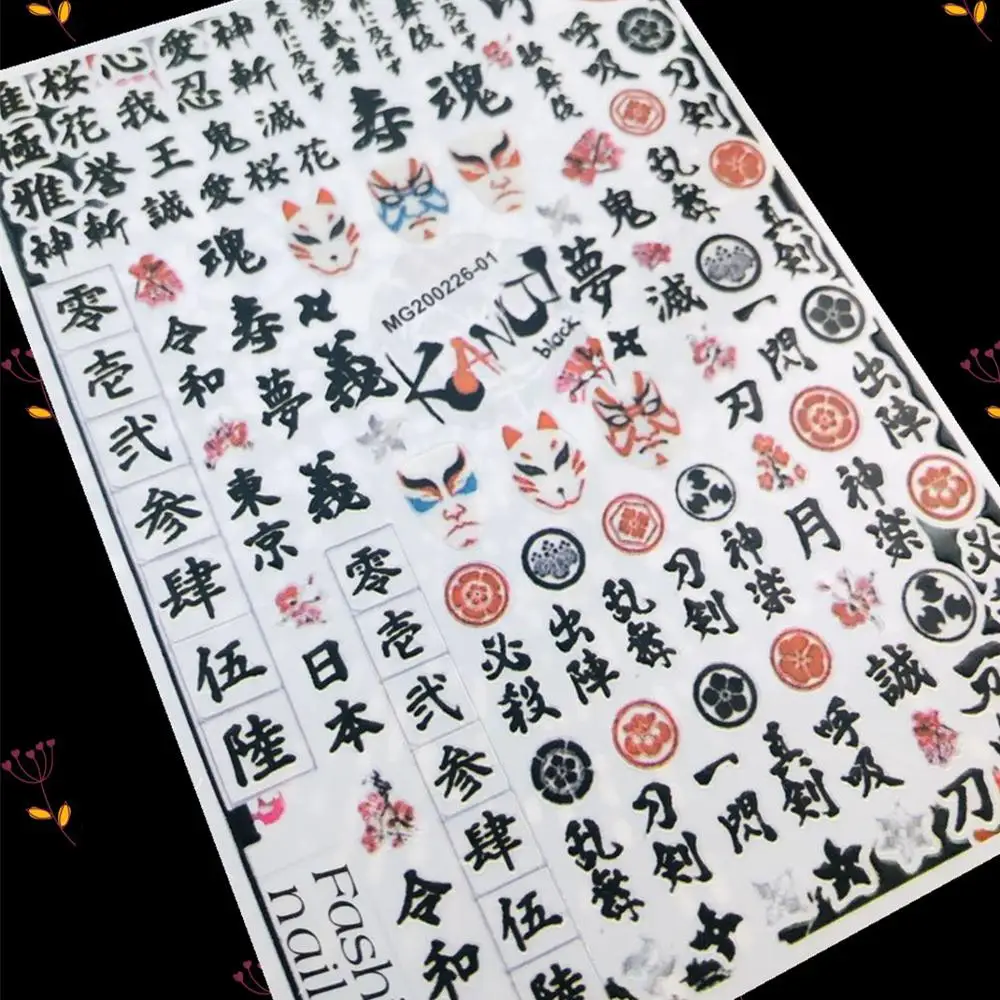 雅 桜 心 愛 神
極 花 我 忍 斬
雅 誉 王 鬼 滅
神 斬 誠 愛 桜 花
影武者
に及ばす
歌舞伎
寿 魂
呼吸
刀剣
魂
鬼
乱舞
真剣
MG200226-01
KANJI
black
夢
滅
一閃
出陣
令和
寿
夢
義
東京
義
刃
月
神楽
必殺
零
壱
弐
参
肆
伍
陸
日本
零
壱
弐
参
肆
伍
陸
必殺
出陣
乱舞
刀剣
神楽
誠
乱舞
刀剣
一閃
真剣
呼吸
刀
刀
令和
Fash
nail